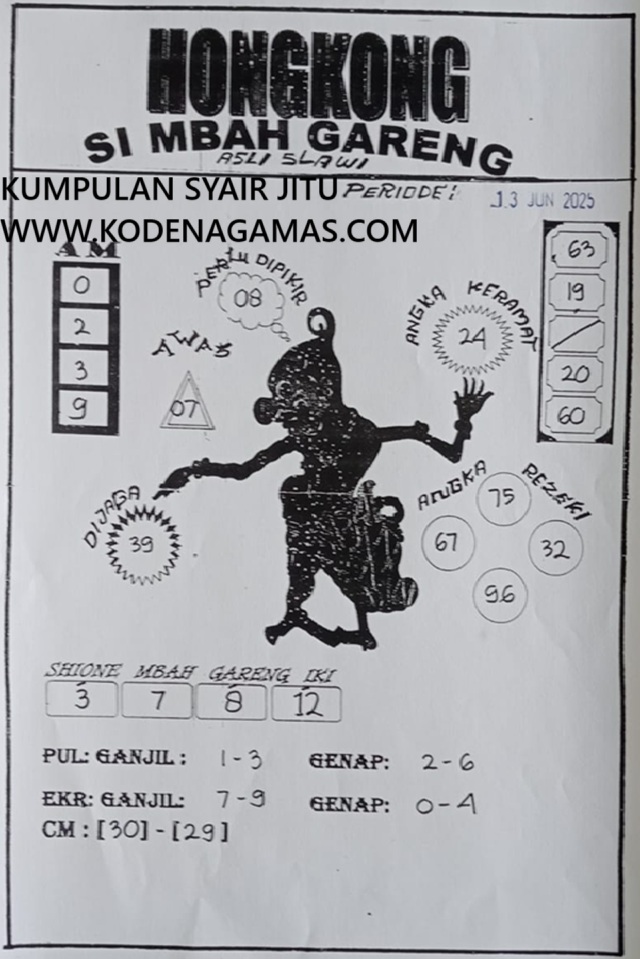 HONGKONG
SI MBAH GARENG
ASLI SLAWI
KUMPULAN SYAIR JITU
PERIODE!
13 JUN 2025
WWW.KODENAGAMAS.COM
AM
0
2
3
9
PERLU DIPIKIR
08
AWAS
07
ANGKA KERAMAT
24
63
19
/
20
60
DIJAGA
39
ANGKA REZEKI
75
67
32
96
SHIONE MBAH GARENG IKI
3 7 8 12
PUL: GANJIL: 1-3 GENAP: 2-6
EKR: GANJIL: 7-9 GENAP: 0-4
CM : [30] - [29]